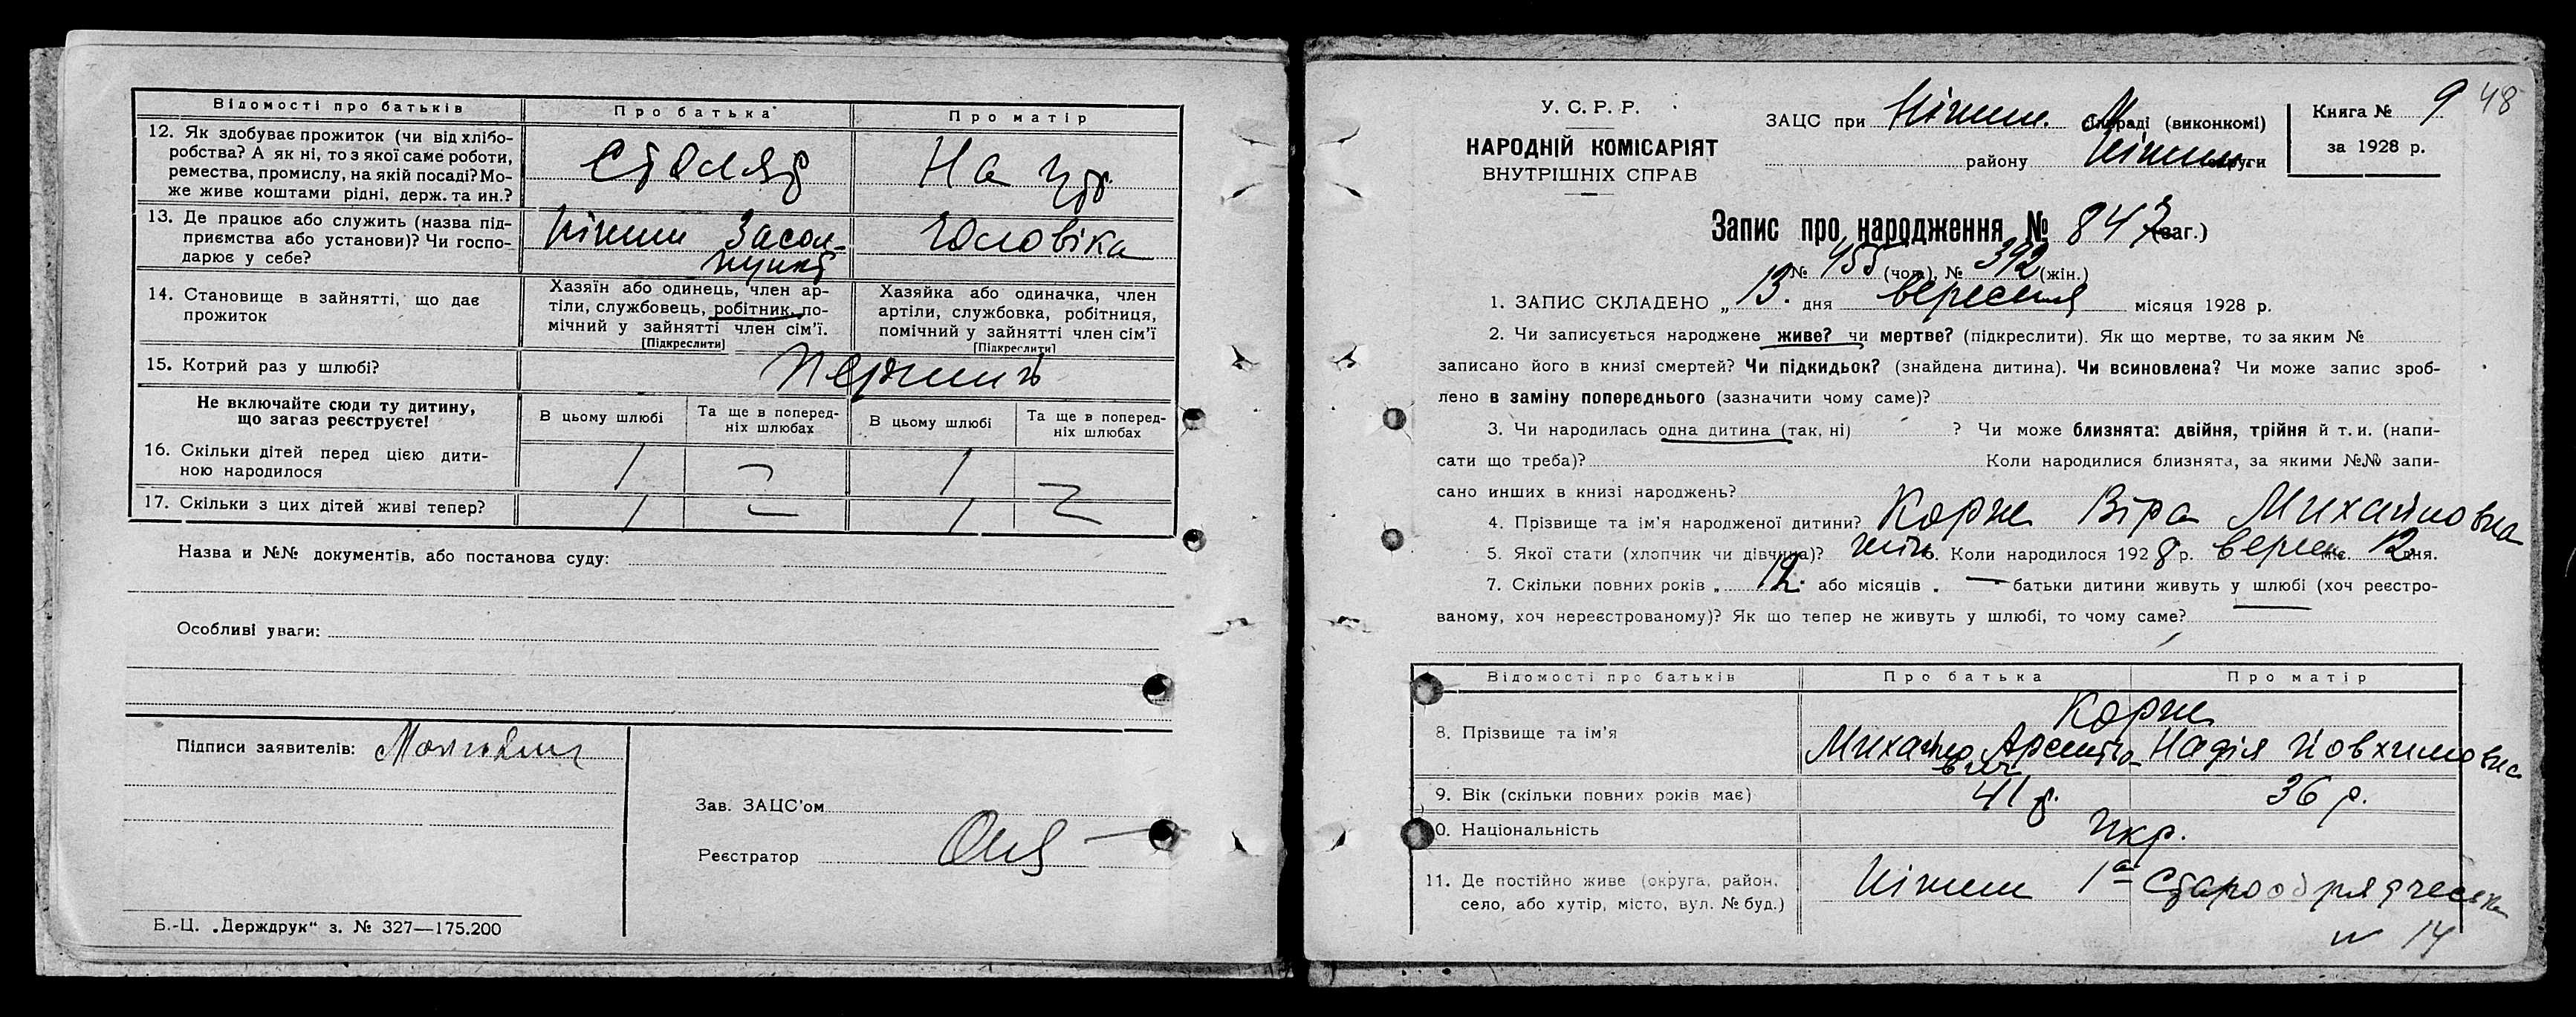 Відомості про батьків
Про батька
Про матір
12. Як здобуває прожиток (чи від хлібо-
робства? А як ні, то з якої саме роботи,
ремества, промислу, на якій посаді? Мо-
же живе коштами рідні, держ. та ин.?
Столяр
На утр.
13. Де працює або служить (назва під-
приємства або установи)? Чи госпо-
дарює у себе?
Ніжин Засол-
пункт
Чоловіка
14. Становище в зайнятті, що дає
прожиток
Хазяїн або одинець, член ар-
тіли, службовець, робітник, по-
мічний у зайнятті член сім'ї.
[Підкреслити]
Хазяйка або одиначка, член
артіли, службовка, робітниця,
помічний у зайнятті член сім'ї
[Підкреслити]
15. Котрий раз у шлюбі?
Перший
Не включайте сюди ту дитину,
що загаз реєструєте!
В цьому шлюбі
Та ще в поперед-
ніх шлюбах
В цьому шлюбі
Та ще в поперед-
ніх шлюбах
16. Скільки дітей перед цією дити-
ною народилося
1 – 1 –
17. Скільки з цих дітей живі тепер?
1 – 1 –
Назва и №№ документів, або постанова суду:
Особливі уваги:
Підписи заявителів:
Зав. ЗАЦС'ом
Реєстратор
Б.-Ц. „Держдрук“ з. № 327—175.200
У. С. Р. Р.
НАРОДНІЙ КОМІСАРІЯТ
ВНУТРІШНІХ СПРАВ
ЗАЦС при Ніжин. М сільраді (виконкомі)
району Ніжин. округи
Книга № 9
за 1928 р.
48
Запис про народження № 847 (заг.)
№ 455 (чол.), № 392 (жін.)
1. ЗАПИС СКЛАДЕНО „ 13. дня вересня місяця 1928 р.
2. Чи записується народжене живе? чи мертве? (підкреслити). Як що мертве, то за яким №
записано його в книзі смертей? Чи підкидьок? (знайдена дитина). Чи всиновлена? Чи може запис зроб-
лено в заміну попереднього (зазначити чому саме)?
3. Чи народилась одна дитина (так, ні) ? Чи може близнята: двійня, трійня й т. и. (напи-
сати що треба)? Коли народилися близнята, за якими №№ запи-
сано инших в книзі народжень?
4. Прізвище та ім'я народженої дитини? Корж Віра Михайловна
5. Якої стати (хлопчик чи дівчина)? жін. 6. Коли народилося 1928 р. верес. міс. 12 дня.
7. Скільки повних років „ 12. або місяців „ — батьки дитини живуть у шлюбі (хоч реєстро-
ваному, хоч нереєстрованому)? Як що тепер не живуть у шлюбі, то чому саме?
Відомості про батьків
Про батька
Про матір
8. Прізвище та ім'я
Корж
Михайло Арсентіє-
вич
Надія Йовхимовна
9. Вік (скільки повних років має)
41 р.
36 р.
10. Національність
Укр.
11. Де постійно живе (округа, район,
село, або хутір, місто, вул. № буд.)
Ніжин 1а Старообрядческа
№ 14